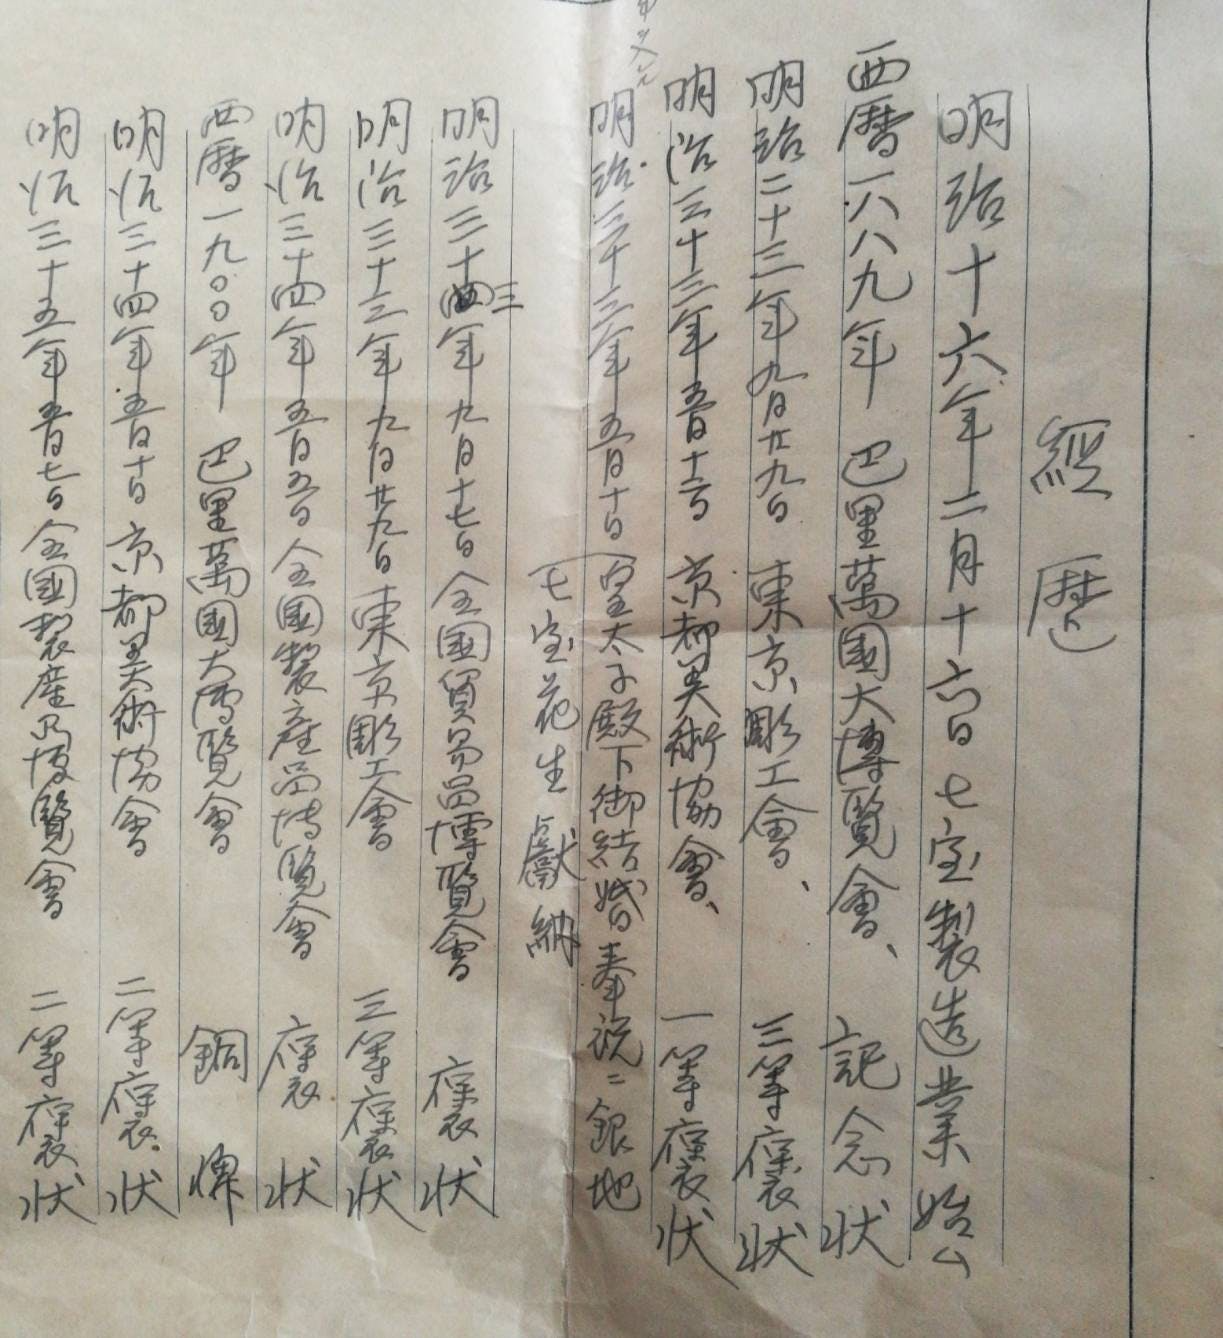 經歴
明治十六年二月十六日七宝製造業始ム
西暦一八八九年 巴里萬國大博覧會、 記念状
明治二十三年九月廿九日 東京彫工會、 三等褒状
明治三十三年五月十二日 京都美術協會、 一等褒状
明治三十三年五月十日 皇太子殿下御結婚奉祝ニ銀地
七宝花生献納
明治三十四三年九月十七日 全國貿易品博覧會 褒状
明治三十三年九月廿九日 東京彫工會 三等褒状
明治三十四年五月五日 全國製産品博覧會 褒状
西暦一九〇〇年 巴里萬國大博覧會 銅牌
明治三十四年五月十日 京都美術協會 二等褒状
明治三十五年五月七日 全國製産品博覧會 二等褒状